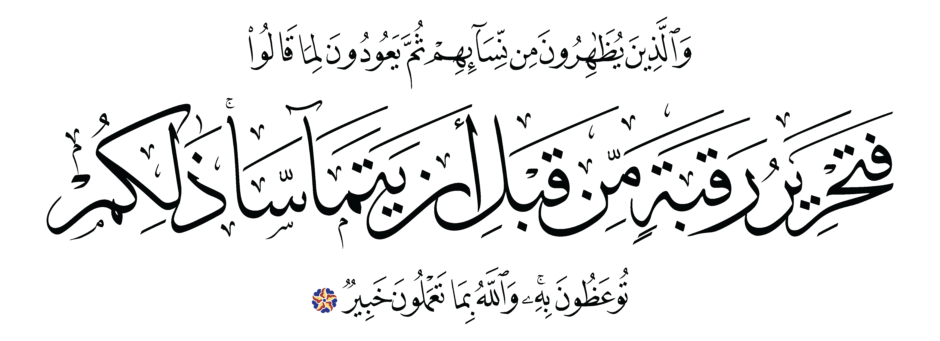 وَٱلَّذِينَ يُظَٰهِرُونَ مِن نِّسَآئِهِمۡ ثُمَّ يَعُودُونَ لِمَا قَالُواْ
فَتَحۡرِيرُ رَقَبَةٖ مِّن قَبۡلِ أَن يَتَمَآسَّاۚ ذَٰلِكُمۡ
تُوعَظُونَ بِهِۦۚ وَٱللَّهُ بِمَا تَعۡمَلُونَ خَبِيرٞ